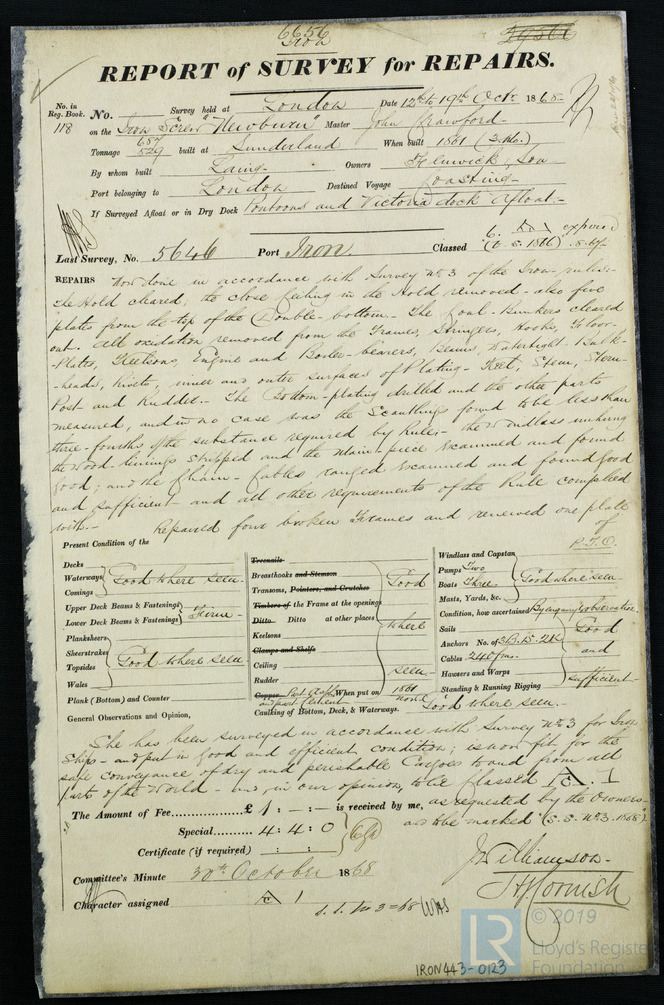 6656
Iron
REPORT of SURVEY for REPAIRS.
No. in Reg. Book. 118
No. Survey held at London Date 12th to 19th Oct. 1868
on the Iron Screw "Newburn" Master John Crawford
Tonnage 687 529 built at Sunderland When built 1861 (3 Mo.)
By whom built Laing Owners Fenwick, Son
Port belonging to London Destined Voyage Coasting
If Surveyed Afloat or in Dry Dock Pontoons and Victoria dock Afloat
Last Survey, No. 5646 Port Iron Classed 6. A 1 expired
REPAIRS Now done in accordance with Survey No 3 of the Iron rules:
the Hold cleared, the close ceiling in the Hold removed - also five
plates from the top of the Double-bottom - The Coal-Bunkers cleared
out. All oxidation removed from the Frames, Stringers, hooks, Floor-
Plates, Keelsons, Engine and Boiler-bearers, Beams, Watertight Bulk-
-heads, rivets, inner and outer surfaces of Plating - Keel, Stem, Stern-
Post and Rudder. - The Bottom-plating drilled and the other parts
measured, and in no case was the Scantling found to be less than
three-fourths of the substance required by Rule; - the Windlass unhung
the Wood-linings stripped and the Main-piece examined and found
good; and the Chain-Cables ranged examined and found good
and sufficient - and all other requirements of the Rule complied
with. - Repaired four broken Frames and renewed one plate
of
P.T.O.
Present Condition of the
Decks
Waterways Good where seen
Comings
Upper Deck Beams & Fastenings
Lower Deck Beams & Fastenings Firm
Planksheers
Sheerstrakes
Topsides Good where seen
Wales
Plank (Bottom) and Counter
Treenails
Breasthooks and Stemson Good
Transoms, Pointers, and Crutches
Timbers of the Frame at the openings
Ditto Ditto at other places where
Keelsons
Clamps and Shelfs
Ceiling
Rudder seen
Copper Part Asph. and part Cement When put on 1861 none
Caulking of Bottom, Deck, & Waterways. Good where seen.
Windlass and Capstan
Pumps Two
Boats Three Good where seen
Masts, Yards, &c.
Condition, how ascertained By enquiry & observation
Sails Good
Anchors No. of 3B. 1S. 2K and
Cables 240 fms.
Hawsers and Warps sufficient
Standing & Running Rigging
General Observations and Opinion,
She has been surveyed in accordance with Survey No 3 for Iron
Ships - and put in good and efficient condition; is now fit, for the
safe conveyance of dry and perishable Cargoes to and from all
parts of the World - and, in our opinion, to be Classed A. 1
The Amount of Fee £ 1 : - : - is received by me, as requested by the Owners
Special 4 : 4 : 0 and to be marked (S.S. No 3. 1868)
Certificate (if required) : :
J Williamson
H J Cornish
Committee's Minute 30th October 1868
Character assigned A 1
S.S. No 3 = 68 WAS
LR
© 2019
Lloyd's Register
Foundation
IRON443-0123